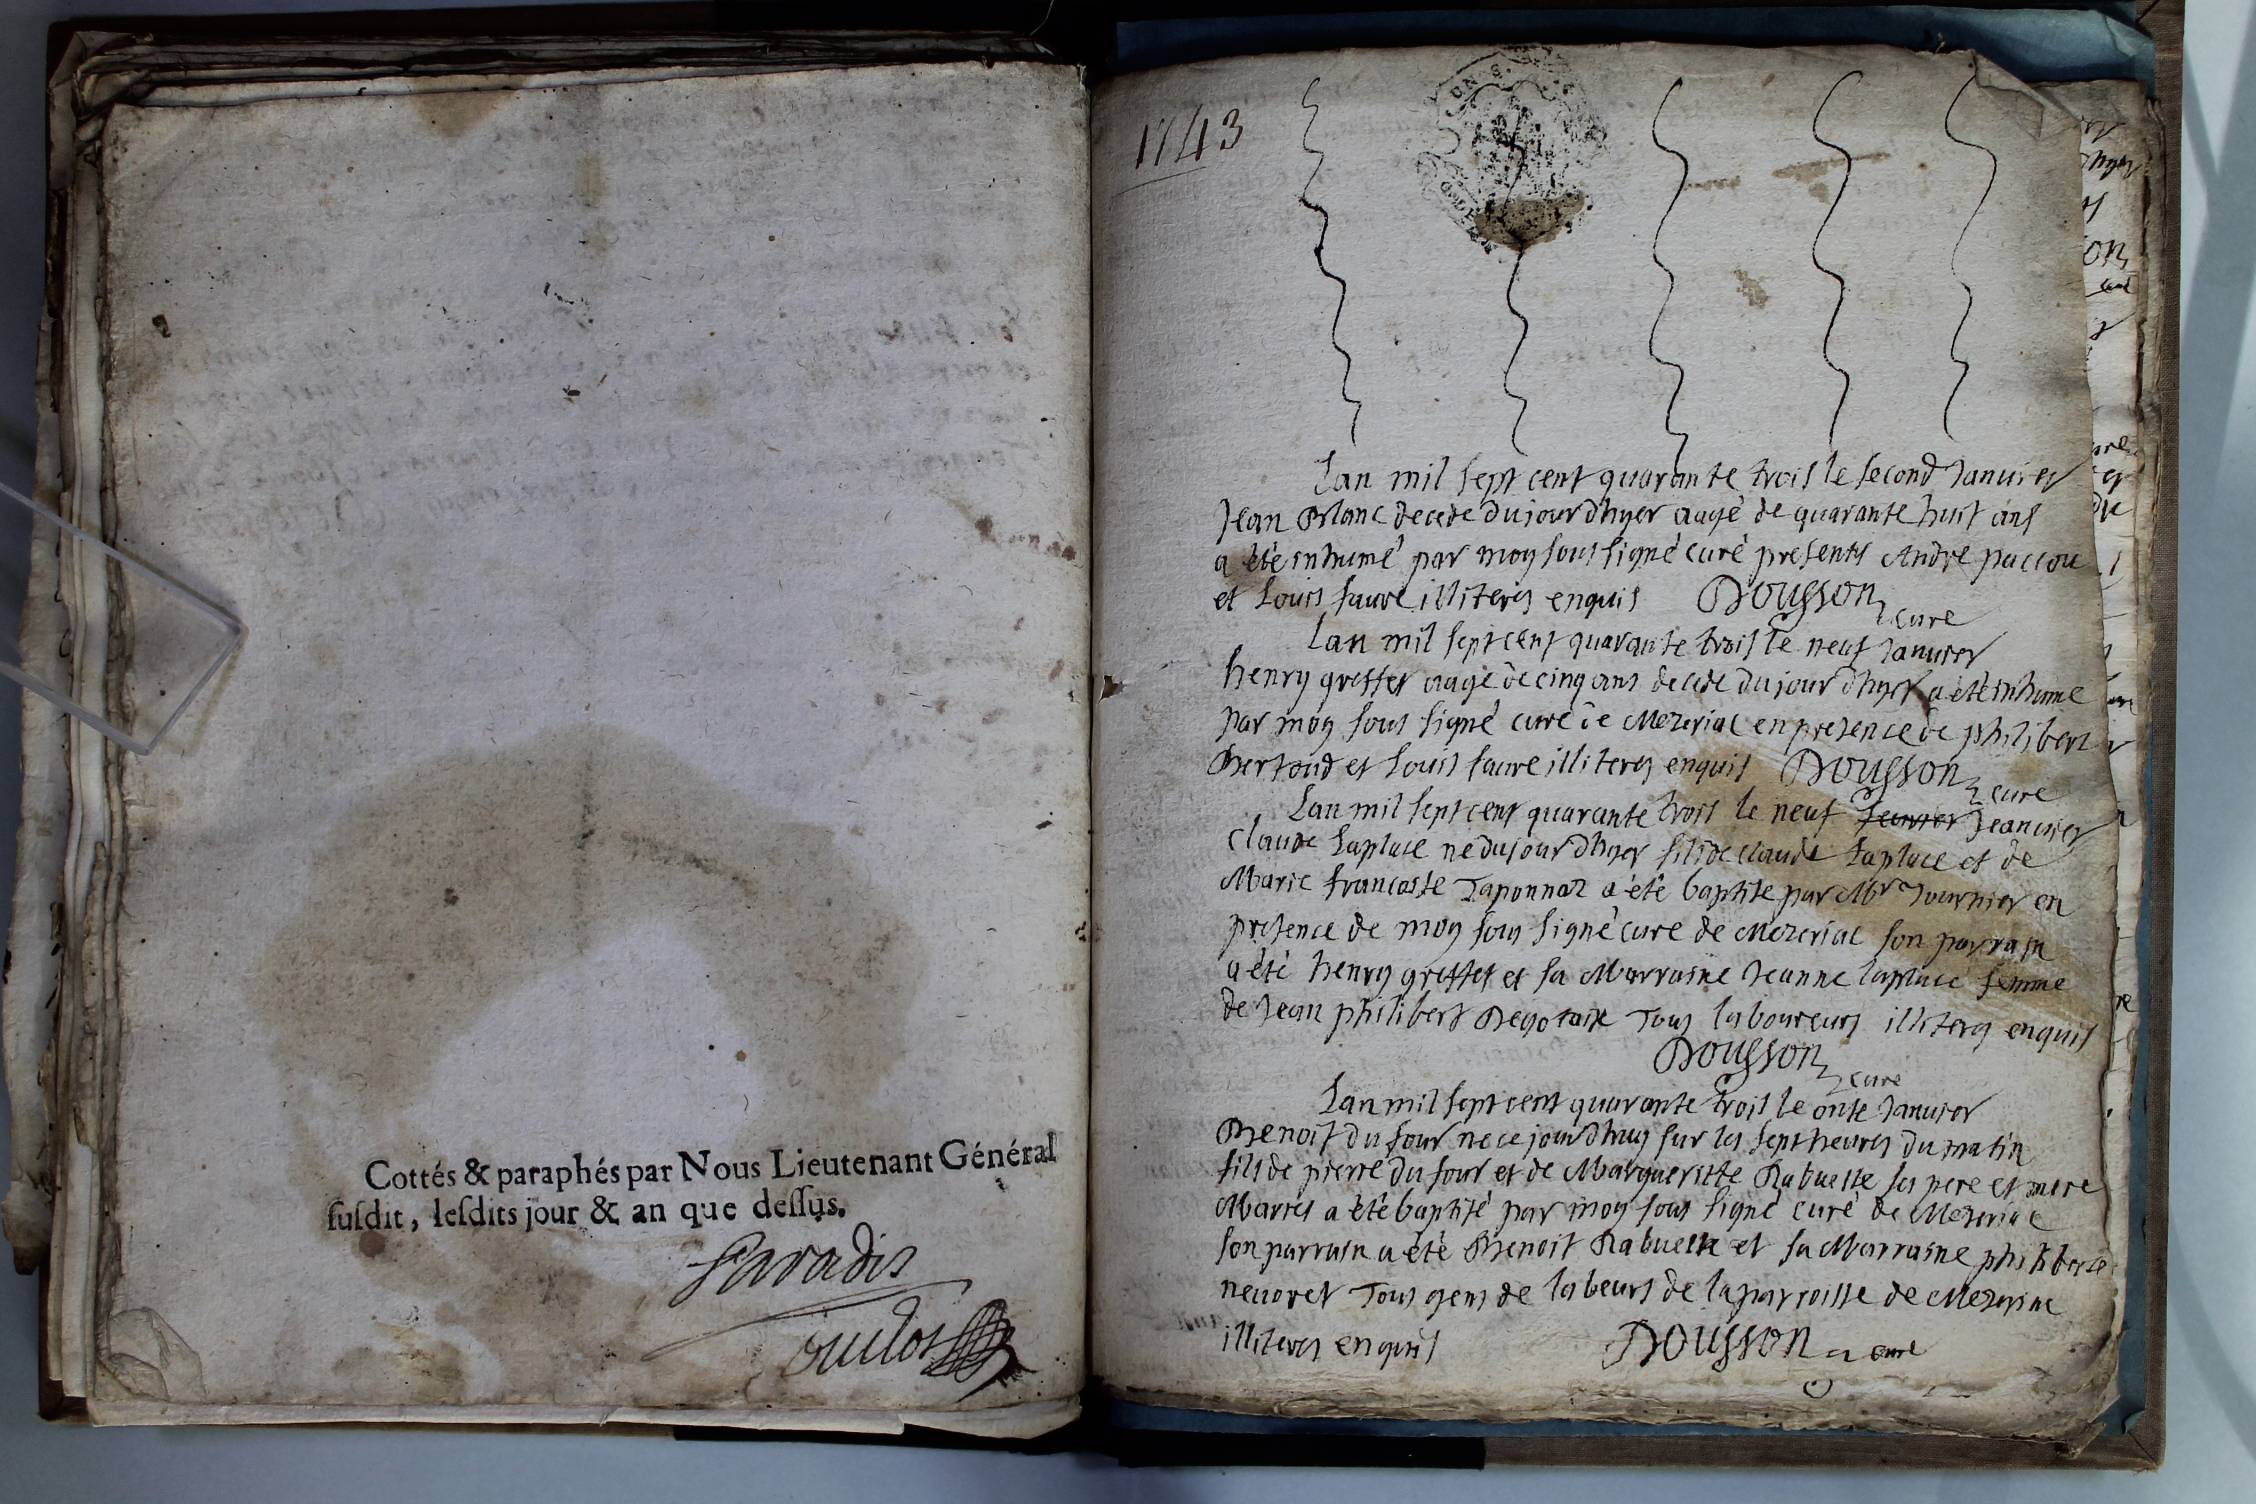 Cottés & paraphés par Nous Lieutenant Général
ſuſdit, leſdits jour & an que deſſus.
Paradis
1743
Lan mil sept cent quarante trois le second Januier
Jean Blanc decede du jour dhyer aagé de quarante huit ans
a été inhumé par moy sous signé curé presents André paccou
et Louis faure illiteres enquis Dousson curé
Lan mil sept cent quarante trois le neuf Januier
henry greffet aagé de cinq ans decede du jour dhyer a été inhumé
par moy sous signé curé de Mezeriac en presence de philibert
Bertoud et Louis faure illiteres enquis Dousson curé
Lan mil sept cent quarante trois le neuf feurier Jeanuier
claude Laplace né du jour dhyer fils de claude Laplace et de
Marie francoise Taponnaz a été baptisé par Mr Tournier en
presence de moy sous signé curé de Mezeriac son parrain
a été henry greffet et sa Marraine Jeanne laplace femme
de Jean philibert Tous laboureurs illiteres enquis
Dousson curé
Lan mil sept cent quarante trois le onse Januier
Benoit du four né ce jourdhuy sur les sept heures du matin
fils de pierre du four et de Margueritte Rabuelle ses pere et mere
Mariés a été baptisé par moy sous signé curé de Mezeriac
son parrain a été Benoit Rabuelle et sa Marraine philiberte
neuoret Tous gens de labeurs de la parroisse de Mezeriac
illiteres enquis Dousson curé